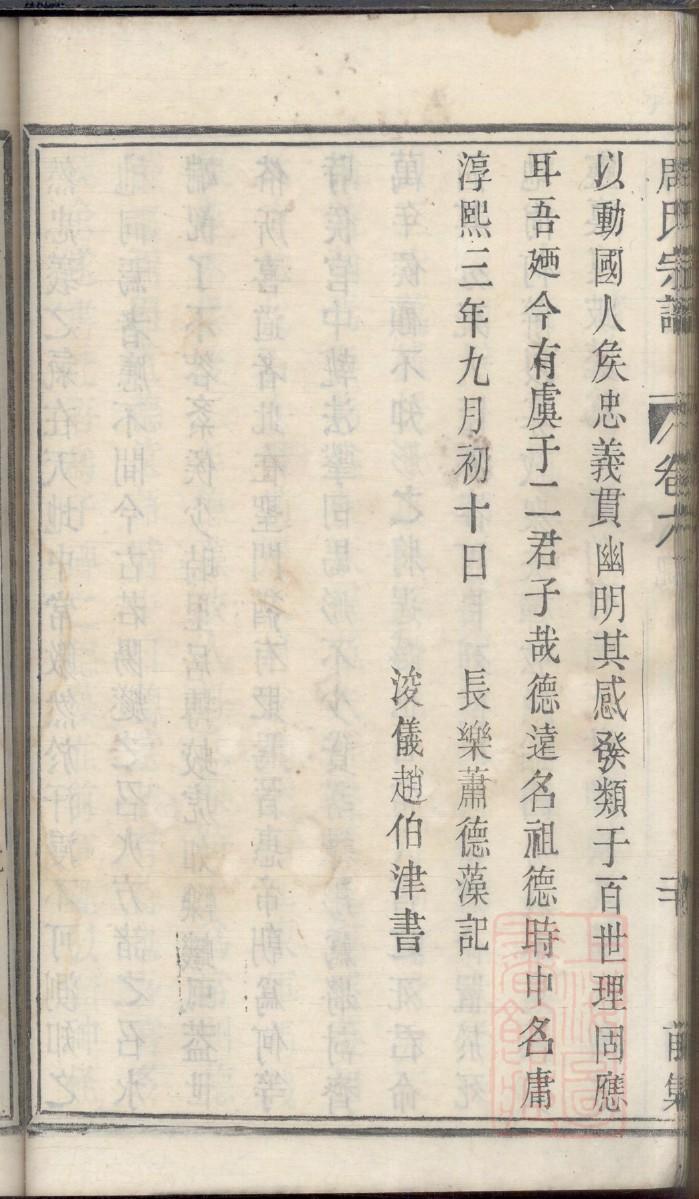 周氏宗譜 卷六 前集
以動國人矦忠義貫幽明其感發類于百世理固應
耳吾廼今有虞于二君子哉德遠名祖德時中名庸
淳熙三年九月初十日 長樂蕭德藻記
浚儀趙伯津書